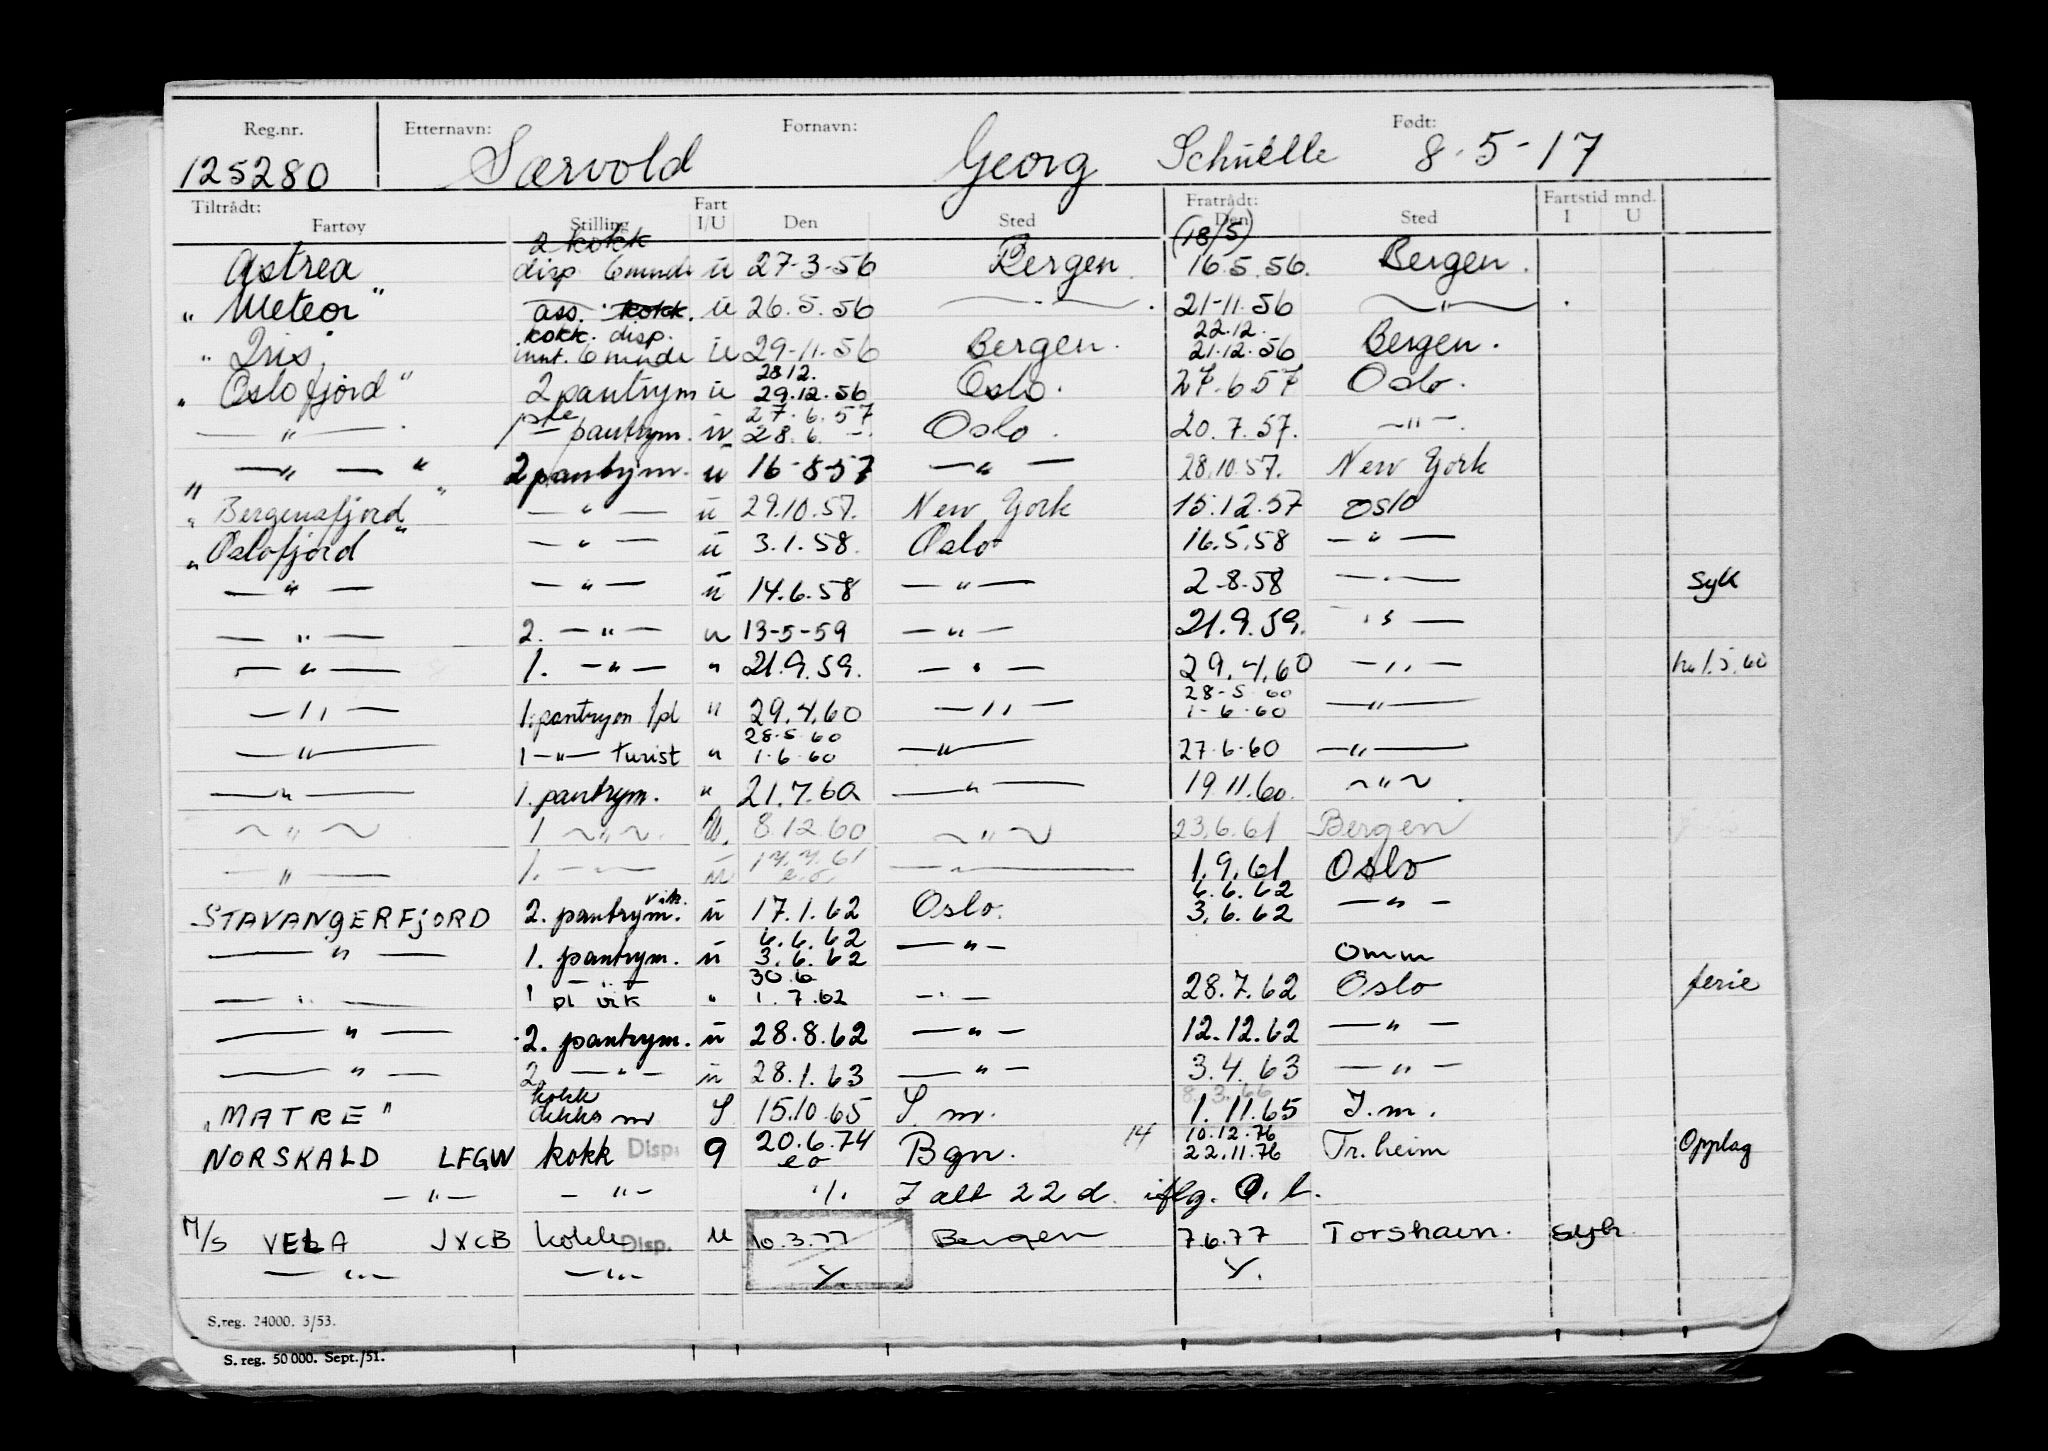 Reg.nr. Etternavn: Fornavn: Født:
125280 Særvold Georg Schüelle 8-5-17
Tiltrådt: Fart Fratrådt: Fartstid mnd.
Fartøy Stilling I/U Den Sted Den Sted I U
2 kokk (18/5)
Astrea disp 6 mndr ü 27-3-56 Bergen 16.5.56. Bergen.
"Meteor" ass. kokk. ü 26.5.56 — " — 21-11.56 — " —
kokk. disp. 22.12.
"Iris, innt. 6 mndr ü 29-11.56 Bergen. 21.12.56 Bergen.
28 12.
"Oslofjord" 2 pantrym ü 29.12.56 Oslo. 27.6 57 Oslo.
27.6.57
— " — 1ste pantrym. ü 28.6. — Oslo. 20.7.57. — " —
" — " — " 2 pantrym. ü 16-8-57 — " — 28.10.57. New York
"Bergensfjord" — " — ü 29.10.57. New York 15.12.57 Oslo
"Oslofjord" — " — ü 3.1.58. Oslo 16.5.58 — " —
— " — — " — ü 14.6.58 — " — 2-8-58 — " — syk
— " — 2. — " — u 13-5-59 — " — 21.9.59. — " —
— " — 1. — " — " 21.9.59. — " — 29.4.60 — " — 1.5.60
28-5 60
— " — 1. pantrym " 29.4.60 — " — 1-6-60 — " —
28.5.60
— " — 1 — " — turist " 1.6.60 — " — 27.6.60 — " —
— " — 1. pantrym. " 21.7.60 — " — 19.11.60. — " —
— " — 1. — " — U. 8.12.60 — " — 23.6.61 Bergen
— " — 1. — " — ü 61 — " — 1.9.61 Oslo
e.o. 6.6.62
STAVANGERFJORD 2. pantrym. vik. ü 17.1.62 Oslo. 3.6.62 — " —
6.6.62
— " — 1. pantrym. ü 3.6.62 — " — omm
30.6
— " — 1 — " — pl vik " 1.7.62 — " — 28.7.62 Oslo ferie
— " — 2. pantrym. ü 28.8.62 — " — 12.12.62 — " —
— " — 2. — " — ü 28.1.63 — " — 3.4.63 — " —
kokk 8.3.66
"MATRE" dekksm S 15.10.65 S.m. 1.11.65 S.m.
10.12.76
NORSKALD LFGW kokk Disp. 9 20.6.74 Bgn. 14 22.11.76 Tr.heim Opplag
eo
— " — — " — ./. I alt 22 d. iflg. O.l.
M/S VELA JXCB kokk Disp. U 10.3.77 Bergen 7.6.77 Torshavn. syk
— " — — " — ./. ./.
S.reg. 24000. 3/53.
S. reg. 50 000. Sept./51.